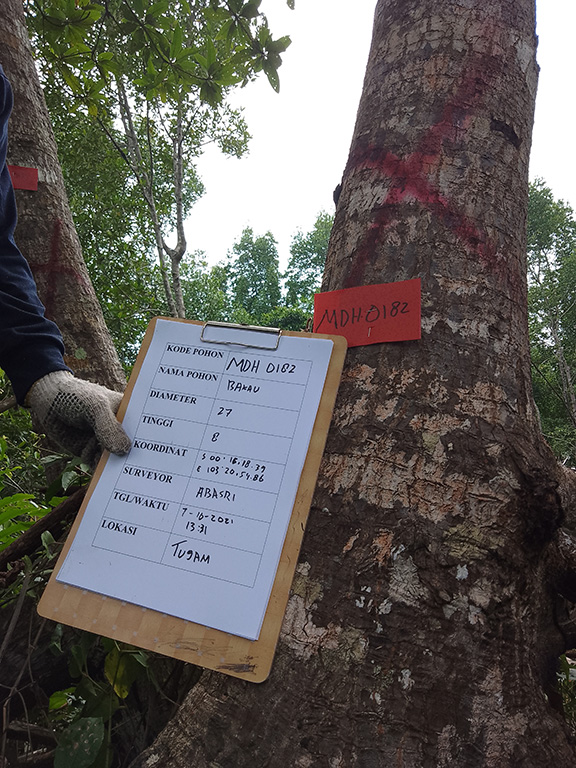 MDH 0182
KODE POHON MDH 0182
NAMA POHON BAKAU
DIAMETER 27
TINGGI 8
KOORDINAT S 00°16.18.39
E 103°20.54.86
SURVEYOR ABASRI
TGL/WAKTU 7-10-2021
13:31
LOKASI TUGAM